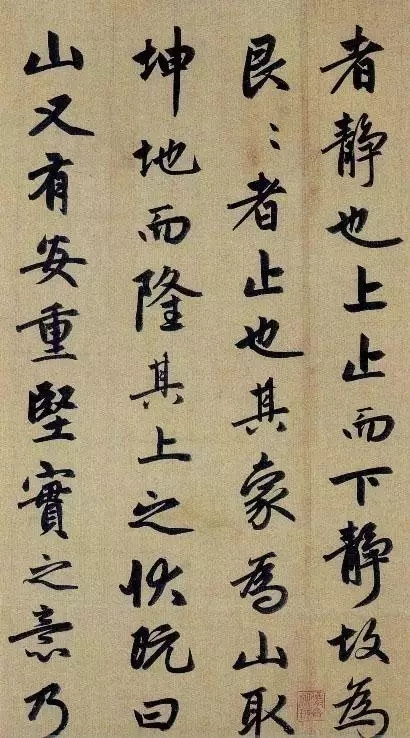 者静也上止而下静故為
艮〻者止也其象為山取
坤地而隆其上之狀既曰
山又有安重堅實之意乃